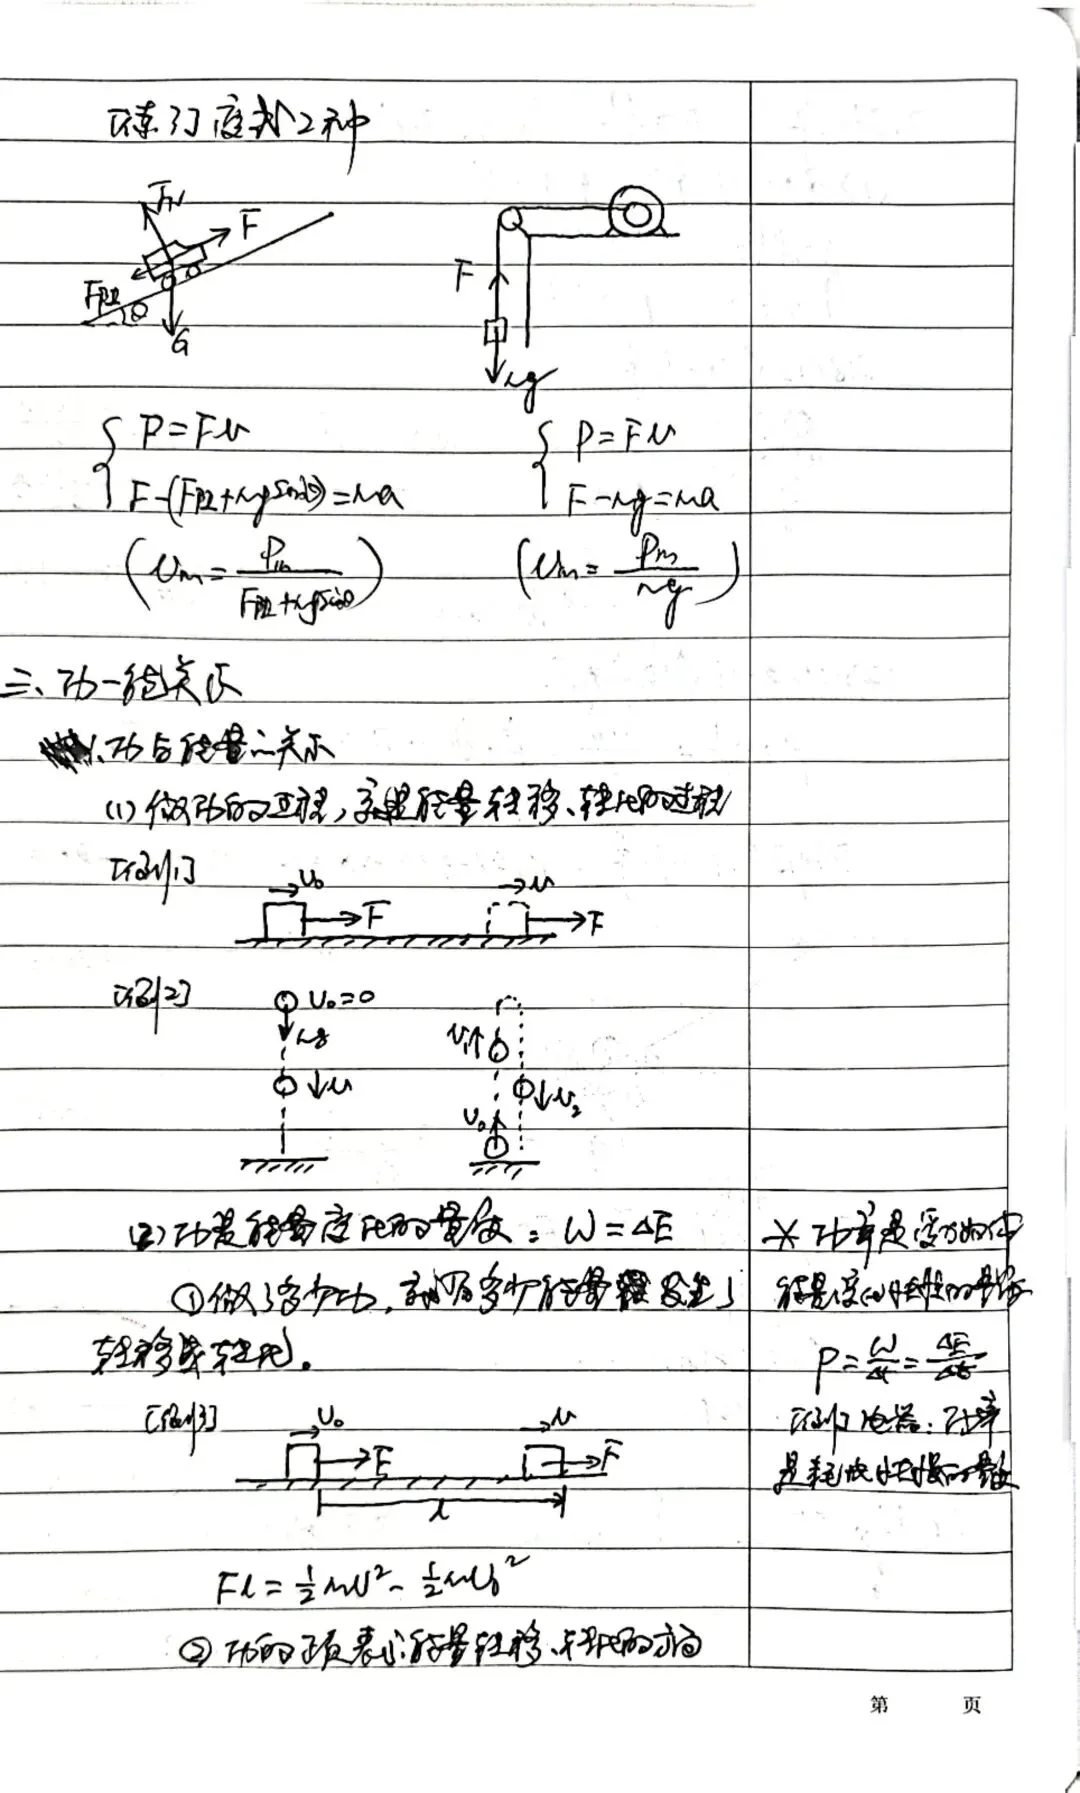 [练习]度式2种
F_N
F
F阻
θ
G
F
mg
P=Fv
F-(F阻+mgsinθ)=ma
(v_m=P_m/(F阻+mgsinθ))
P=Fv
F-mg=ma
(v_m=P_m/mg)
三、功一能关系
1、功与能量的关系
(1)做功的过程,就是能量转移、转化的过程
[例1]
v₀
F
v
F
[例2]
v₀=0
mg
v
v₁
v₂
v₀
(2)功是能量变化的量度:W=ΔE
①做了多少功,就有多少能量发生了
转移或转化。
[例3]
v₀
F
v
F
l
Fl=½mv²-½mv₀²
②功的正负表示能量转移、转化的方向
*功率是受力物体
能量变化快慢的量度
P=W/Δt=ΔE/Δt
[例]电器:功率
是耗电快慢的量度
第 页